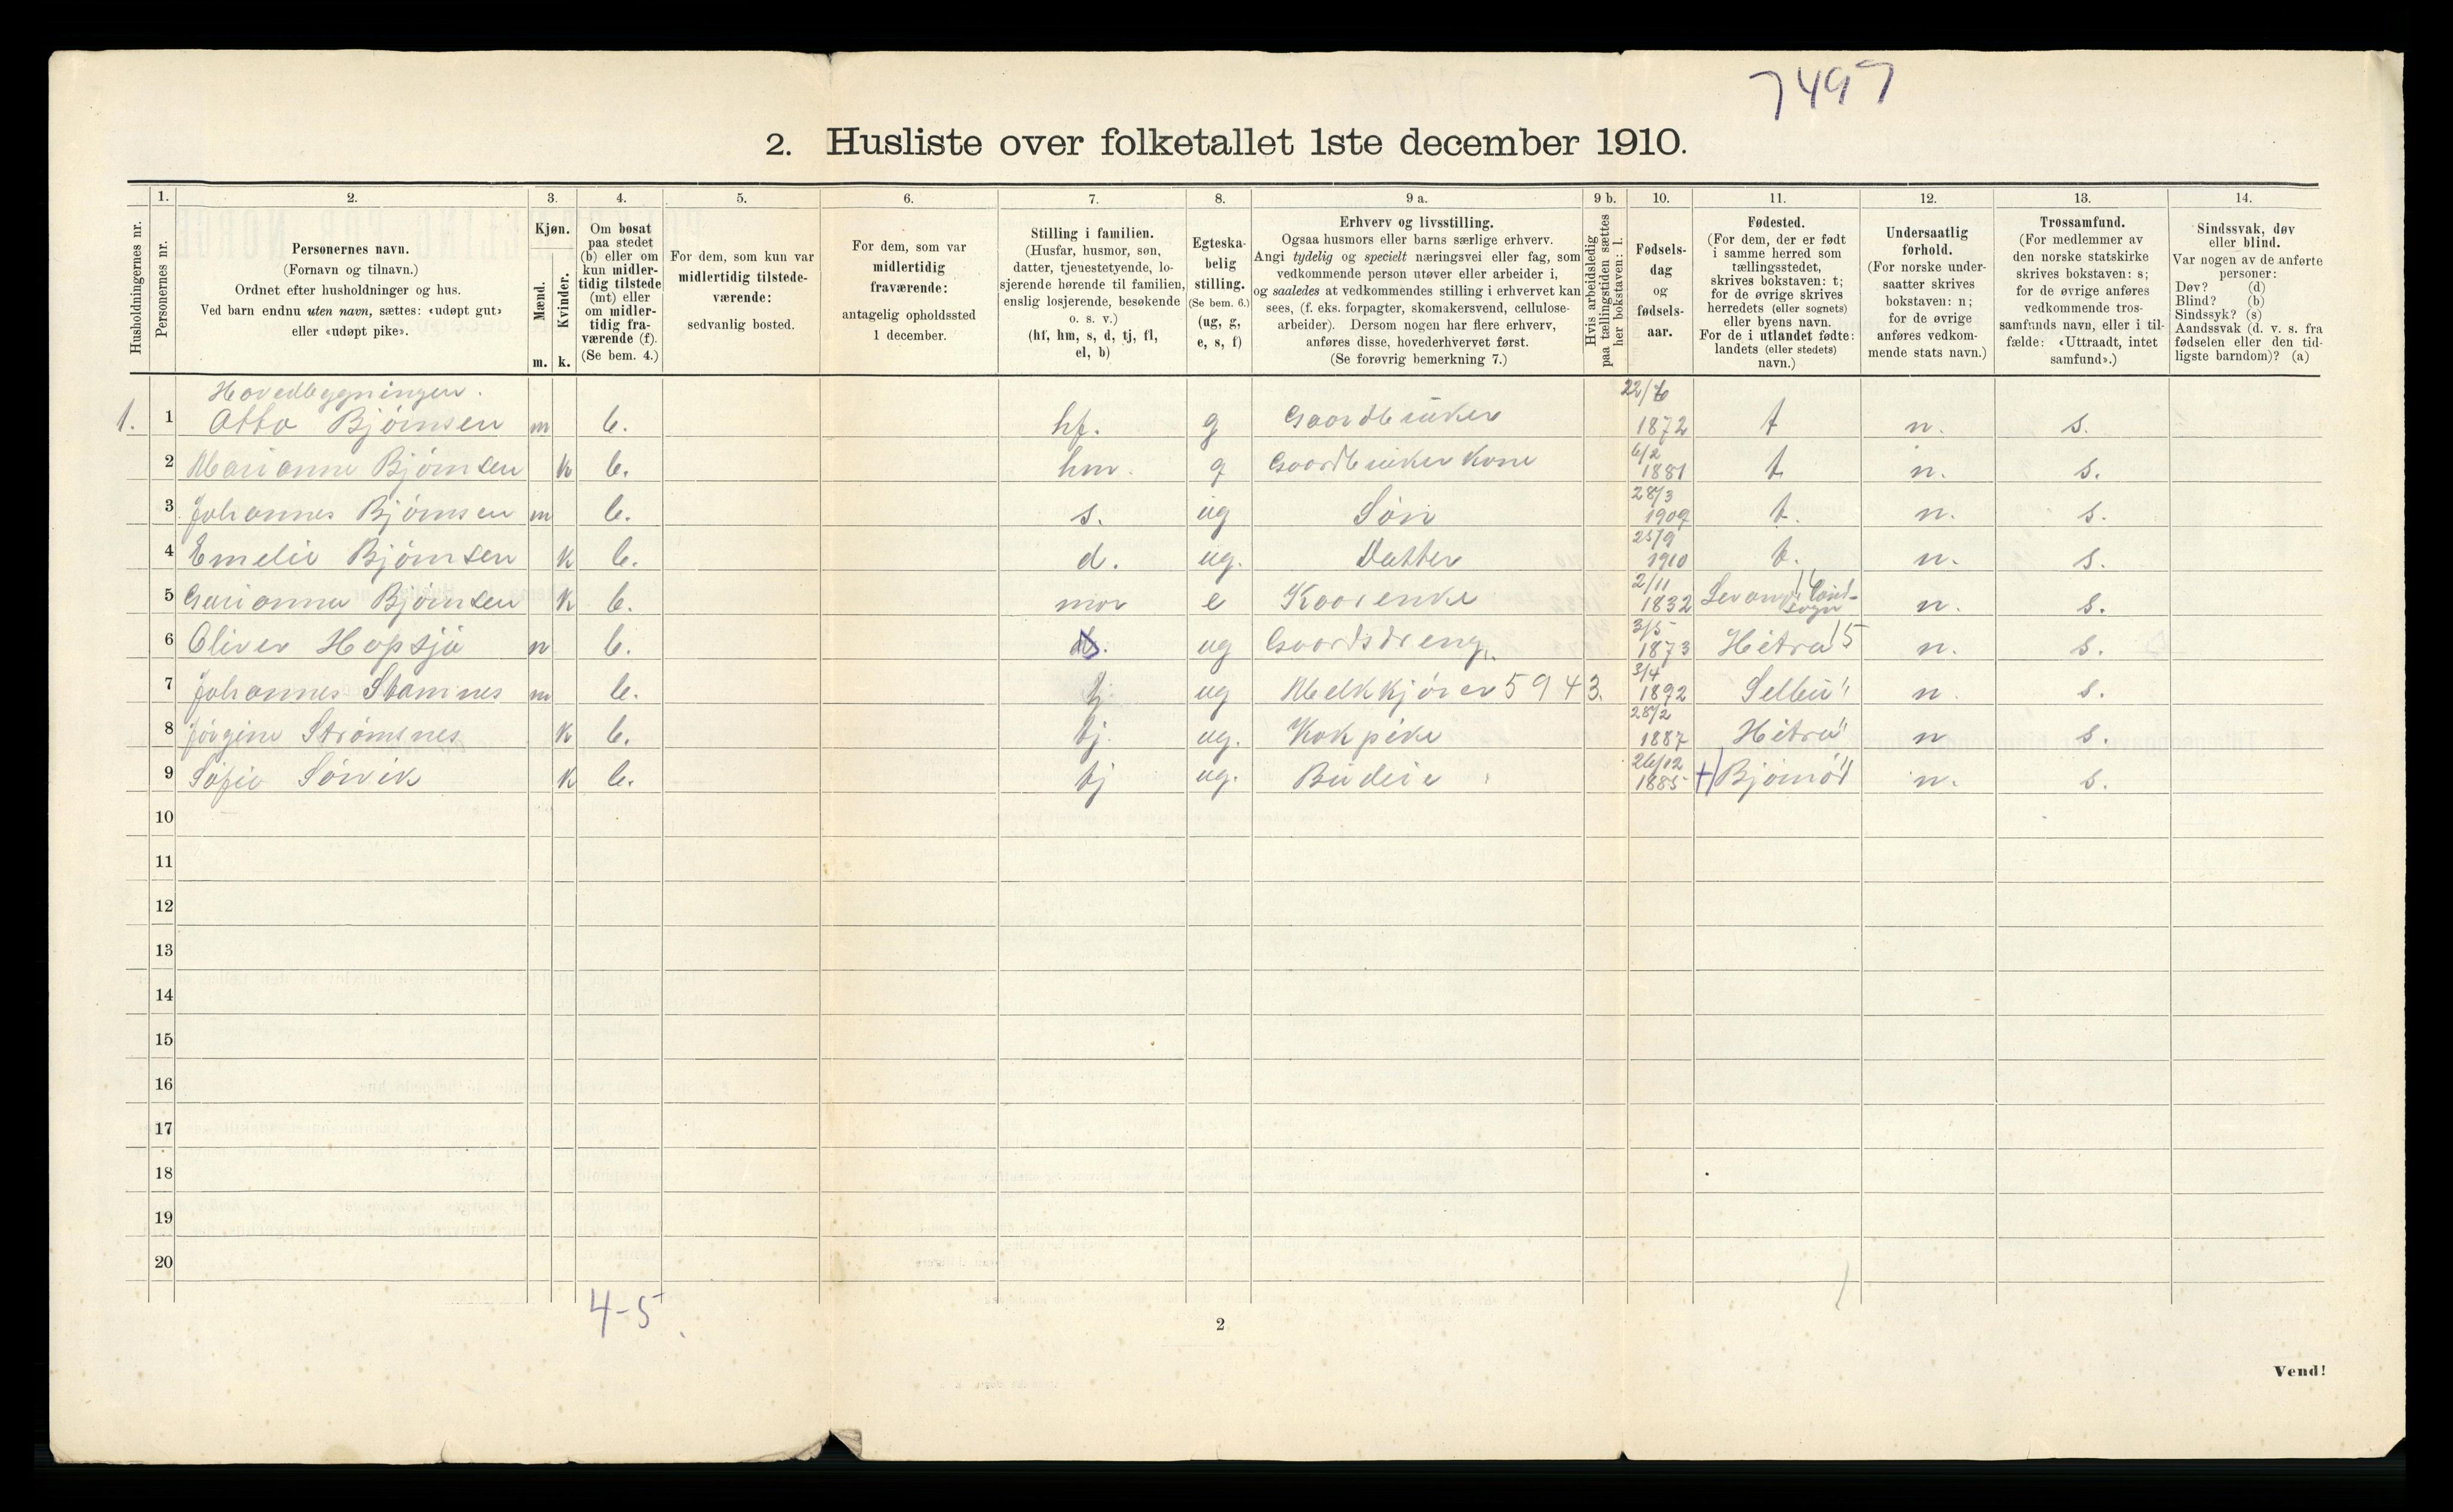 7497
2. Husliste over folketallet 1ste december 1910.
Husholdningernes nr.
1.
Personernes nr.
2.
Personernes navn.
(Fornavn og tilnavn.)
Ordnet efter husholdninger og hus.
Ved barn endnu uten navn, sættes: «udøpt gut»
eller «udøpt pike».
3.
Kjøn.
Mænd.
Kvinder.
m. k.
4.
Om bosat
paa stedet
(b) eller om
kun midler-
tidig tilstede
(mt) eller
om midler-
tidig fra-
værende (f).
(Se bem. 4.)
5.
For dem, som kun var
midlertidig tilstede-
værende:
sedvanlig bosted.
6.
For dem, som var
midlertidig
fraværende:
antagelig opholdssted
1 december.
7.
Stilling i familien.
(Husfar, husmor, søn,
datter, tjenestetyende, lo-
sjerende hørende til familien,
enslig losjerende, besøkende
o. s. v.)
(hf, hm, s, d, tj, fl,
el, b)
8.
Egteska-
belig
stilling.
(Se bem. 6.)
(ug, g,
e, s, f)
9 a.
Erhverv og livsstilling.
Ogsaa husmors eller barns særlige erhverv.
Angi tydelig og specielt næringsvei eller fag, som
vedkommende person utøver eller arbeider i,
og saaledes at vedkommendes stilling i erhvervet kan
sees, (f. eks. forpagter, skomakersvend, cellulose-
arbeider). Dersom nogen har flere erhverv,
anføres disse, hovederhvervet først.
(Se forøvrig bemerkning 7.)
9 b.
Hvis arbeidsledig
paa tællingstiden sættes
her bokstaven: l.
10.
Fødsels-
dag
og
fødsels-
aar.
11.
Fødested.
(For dem, der er født
i samme herred som
tællingsstedet,
skrives bokstaven: t;
for de øvrige skrives
herredets (eller sognets)
eller byens navn.
For de i utlandet fødte:
landets (eller stedets)
navn.)
12.
Undersaatlig
forhold.
(For norske under-
saatter skrives
bokstaven: n;
for de øvrige
anføres vedkom-
mende stats navn.)
13.
Trossamfund.
(For medlemmer av
den norske statskirke
skrives bokstaven: s;
for de øvrige anføres
vedkommende tros-
samfunds navn, eller i til-
fælde: «Uttraadt, intet
samfund».)
14.
Sindssvak, døv
eller blind.
Var nogen av de anførte
personer:
Døv? (d)
Blind? (b)
Sindssyk? (s)
Aandssvak (d. v. s. fra
fødselen eller den tid-
ligste barndom)? (a)
Hovedbygningen.
1. 1 Otto Bjørnsen m b. hf. g Gaardbruker 22/6 1872 t n. s.
2 Marianne Bjørnsen k b. hm. g Gaardbruker kone 6/2 1881 t n. s.
3 Johannes Bjørnsen m b. s. ug Søn 28/3 1909 t. n. s.
4 Emelie Bjørnsen k b. d. ug. Datter 25/9 1910 t. n. s.
5 Garianna Bjørnsen k b. mor e Kaarenke 2/11 1832 Levang Land-sogn n. s.
6 Oliver Hopsjø m b. ug Gaardsdreng 3/5 1873 Hitra 15 n. s.
7 Johannes Stamnes m b. tj. ug Melkkjører 5943. 3/4 1892 Selbu n. s.
8 Jørgine Strømsnes k b. tj. ug. Kokpike 28/2 1887 Hitra n s.
9 Sofie Sørvik k b. tj ug. Budeie 26/12 1885 Bjørnør n. s.
10
11
12
13
14
15
16
17
18
19
20
4-5
2
Vend!